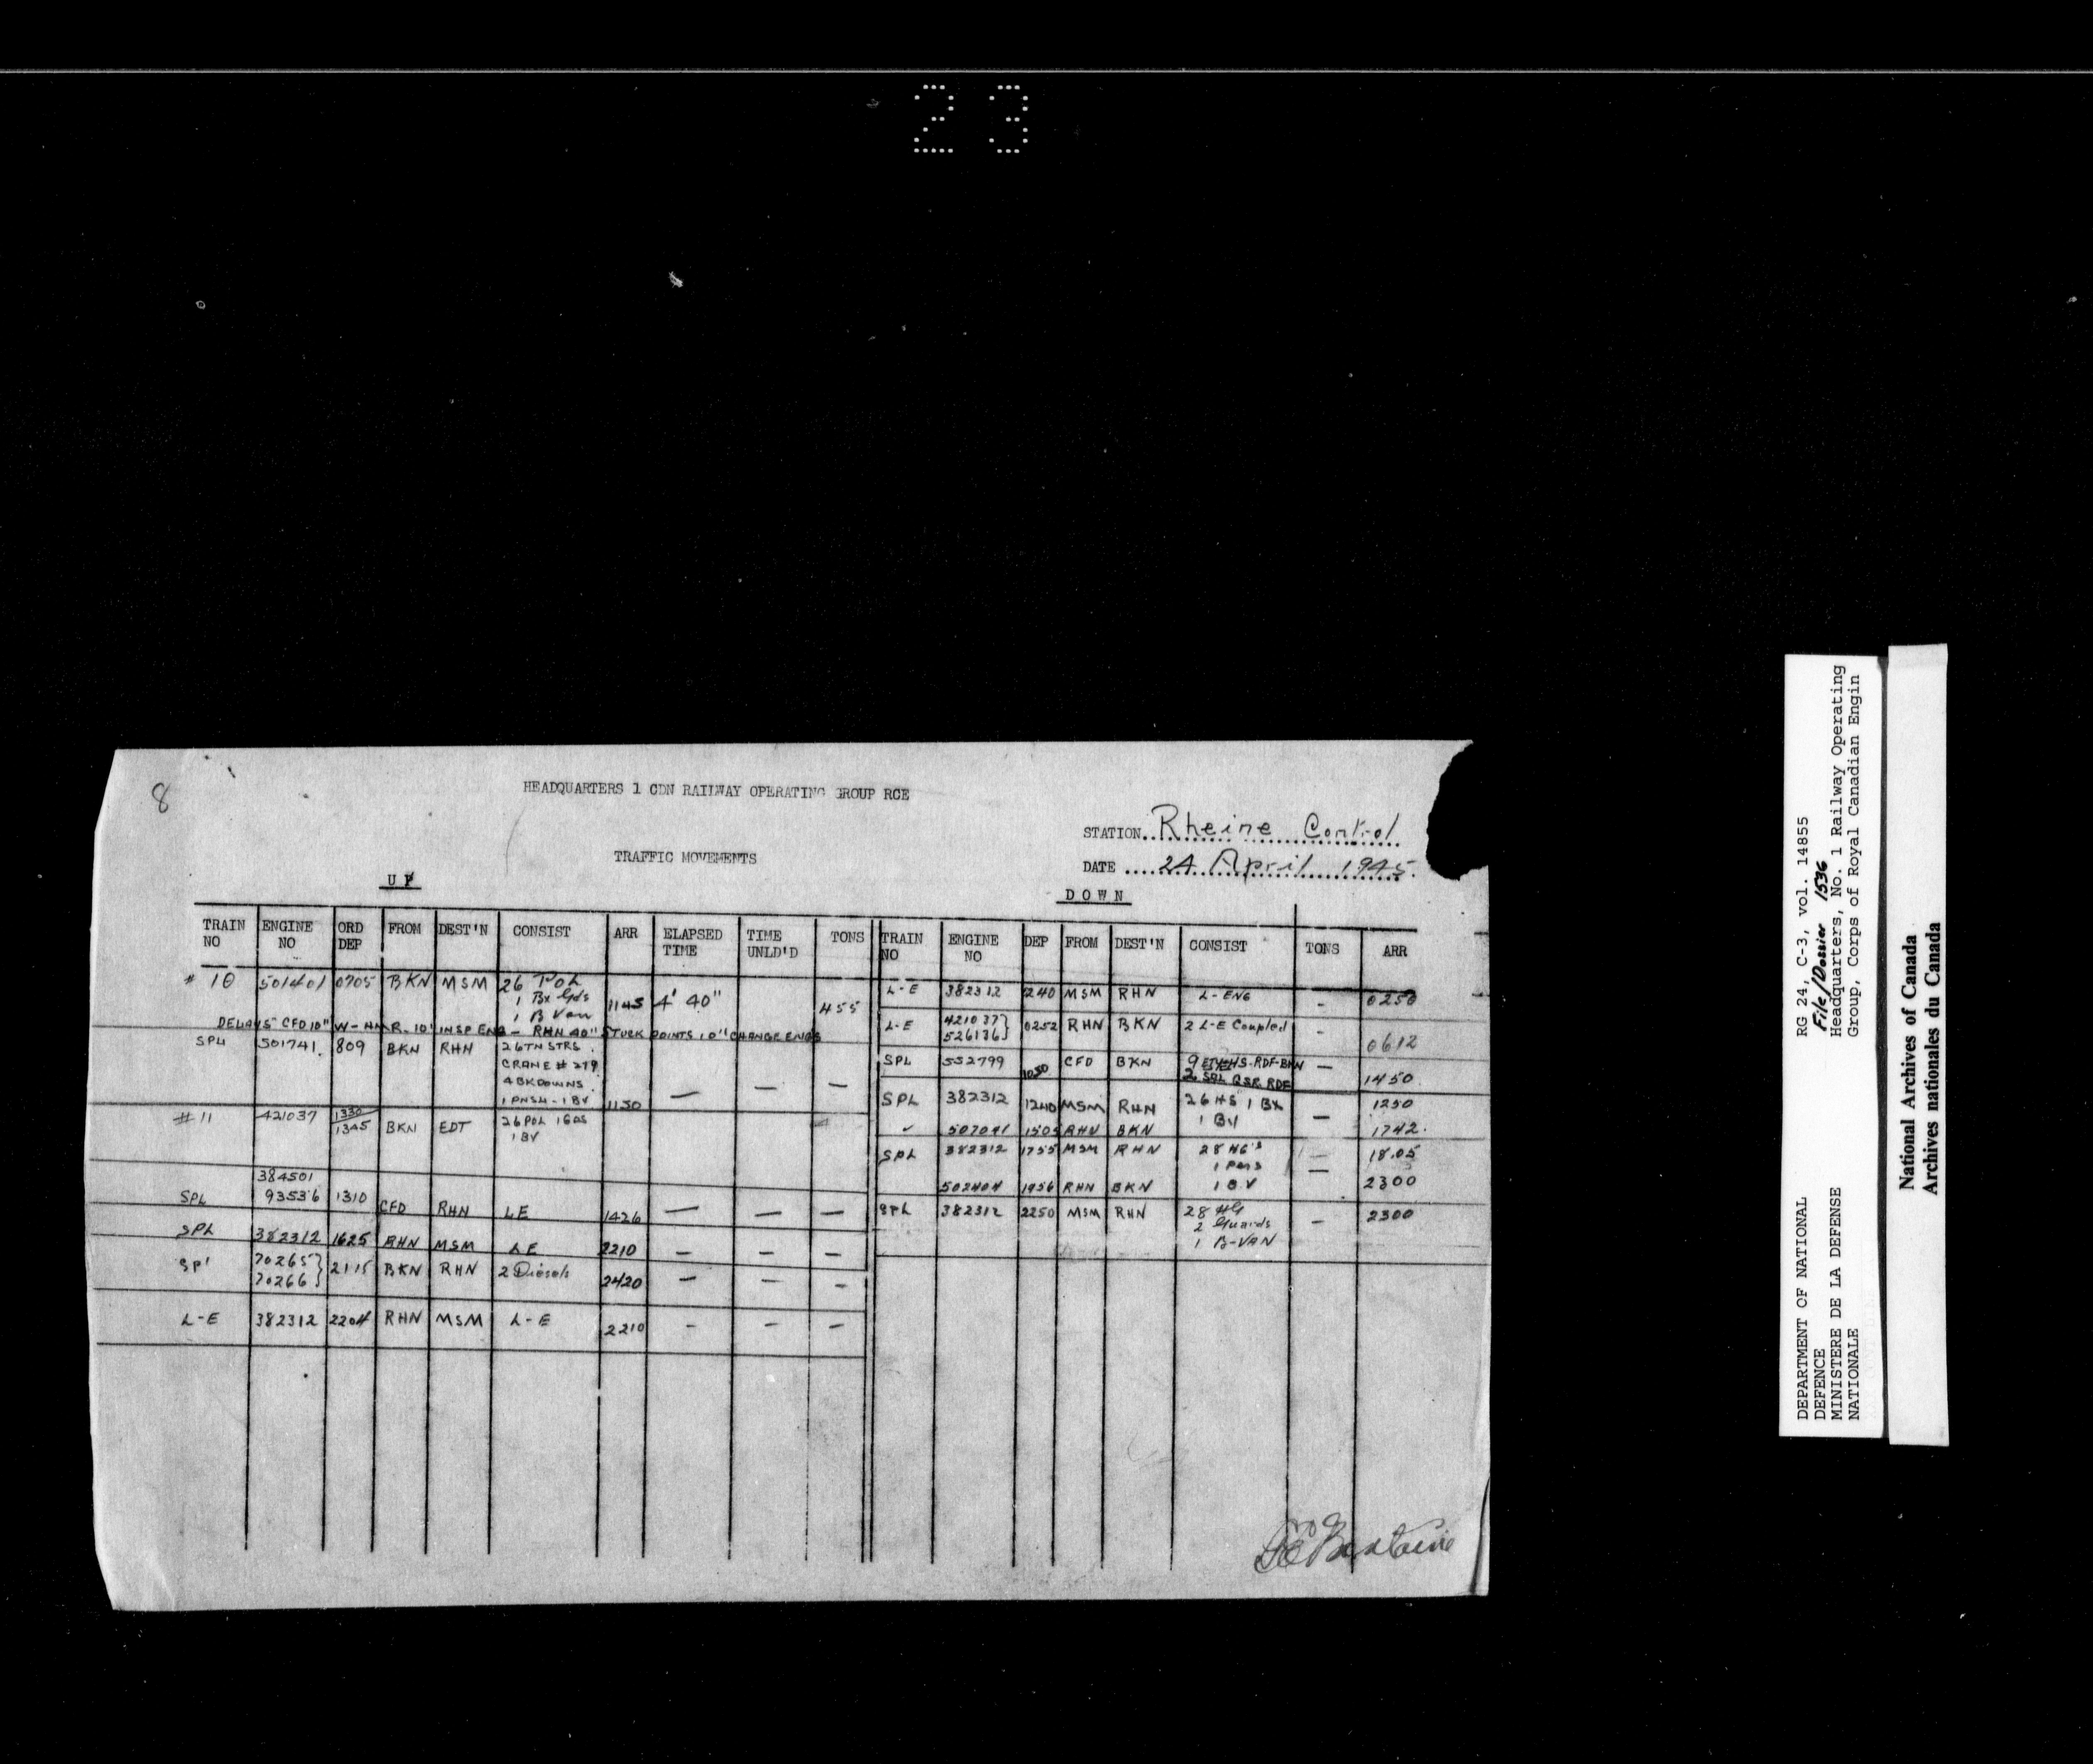 23
8
HEADQUARTERS 1 CDN RAILWAY OPERATING GROUP RCE
STATION Rheine Control
TRAFFIC MOVEMENTS
DATE 24 April 1945
UP
DOWN
TRAIN NO ENGINE NO ORD DEP FROM DEST'N CONSIST ARR ELAPSED TIME TIME UNLD'D TONS
# 10 501401 0705 BKN MSM 26 POL 1 Bx Gds 1 B Van 1145 4' 40" 455
DELAYS CFD 10" W- 10" INSP ENG - RHN 40" STUCK POINTS 10" CHANGE ENGS
SPL 501741 809 BKN RHN 26 TN STRS CRANE # 279 4 BKDOWNS 1 BV 1150 — — —
# 11 421037 1330 1345 BKN EDT 26 POL 1 GDS 1 BV
SPL 384501 93536 1310 CFD RHN LE 1426 — — —
SPL 382312 1625 RHN MSM LE 2210 — — —
SPL 70265 70266 } 2115 BKN RHN 2 Diesels 2420 — — -
L-E 382312 2204 RHN MSM L-E 2210 - - -
TRAIN NO ENGINE NO DEP FROM DEST'N CONSIST TONS ARR
L-E 382312 240 MSM RHN L-ENG - 0250
L-E 421037 526136 } 0252 RHN BKN 2 L-E Coupled - 0612
SPL 552799 1030 CFD BKN 9 2 — 1450
SPL 382312 1240 MSM RHN 26 HS 1 Bx 1 BV — 1250
507041 1505 RHN BKN 1742.
SPL 382312 1755 MSM RHN 28 HG's 1 Pass 1 B.V — 18.05
502404 1956 RHN BKN 2300
SPL 382312 2250 MSM RHN 28 HG 2 Guards 1 B-VAN - 2300
RG 24, C-3, vol. 14855
File/Dossier 1536
Headquarters, No. 1 Railway Operating
Group, Corps of Royal Canadian Engin
DEPARTMENT OF NATIONAL
DEFENCE
MINISTERE DE LA DEFENSE
NATIONALE
National Archives of Canada
Archives nationales du Canada